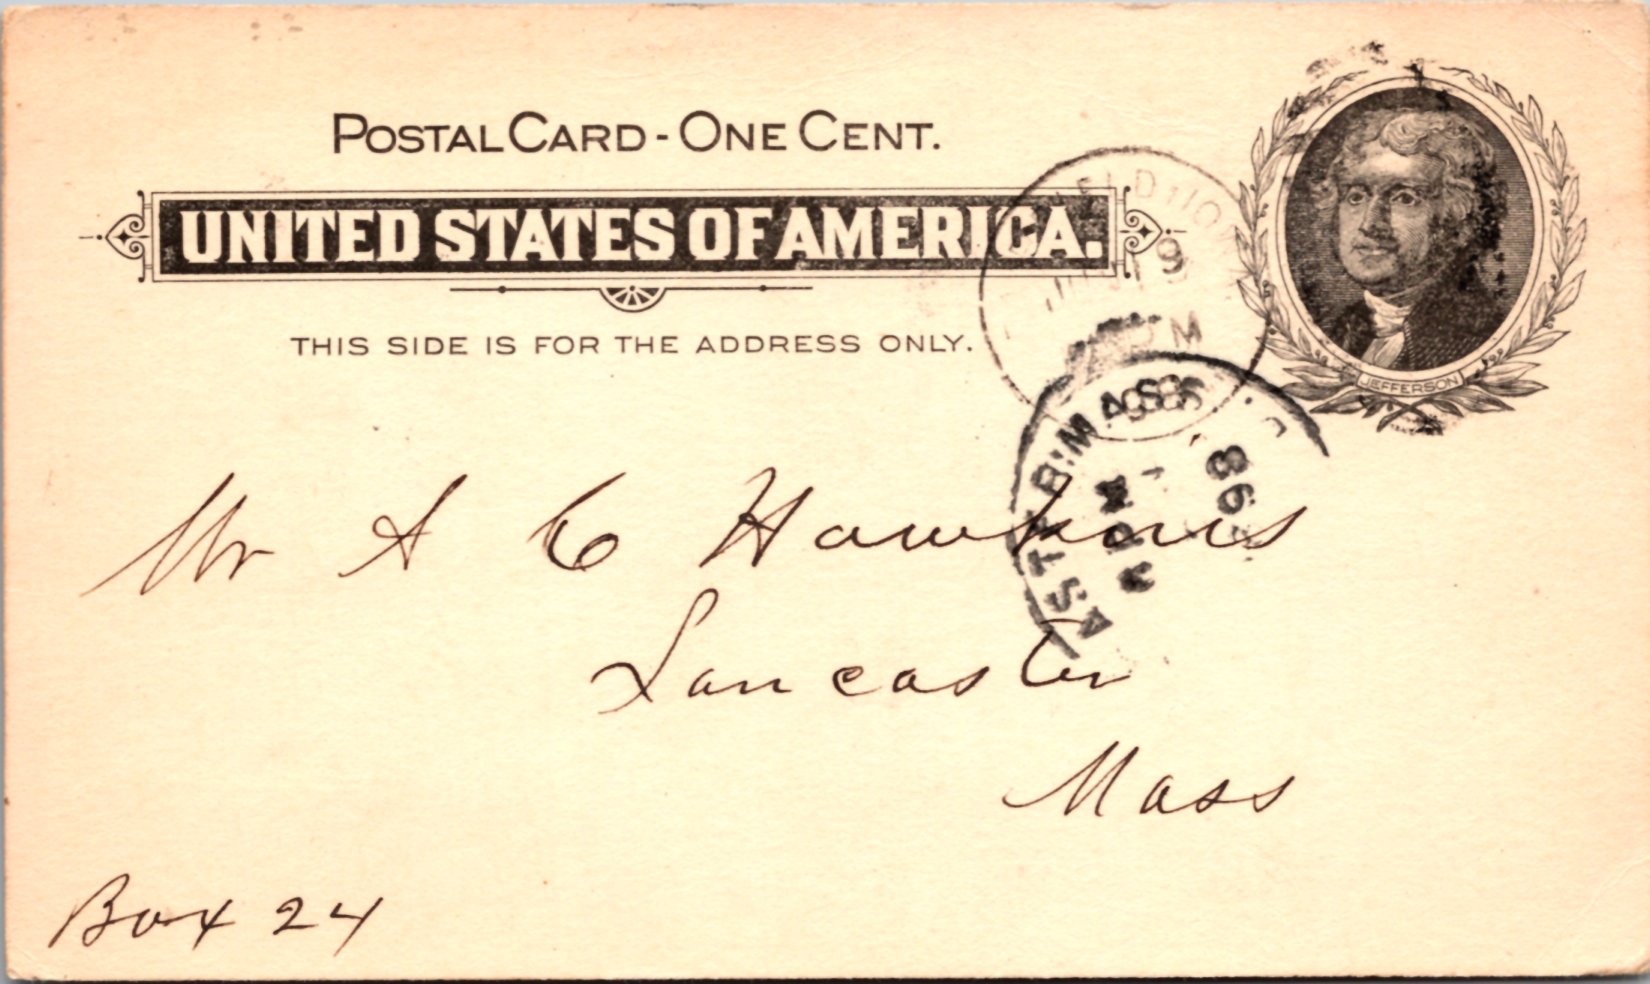 POSTAL CARD - ONE CENT.
UNITED STATES OF AMERICA.
THIS SIDE IS FOR THE ADDRESS ONLY.
JEFFERSON
9
PM
MASS
98
Mr A C Hawkins
Lancaster
Mass
Box 24